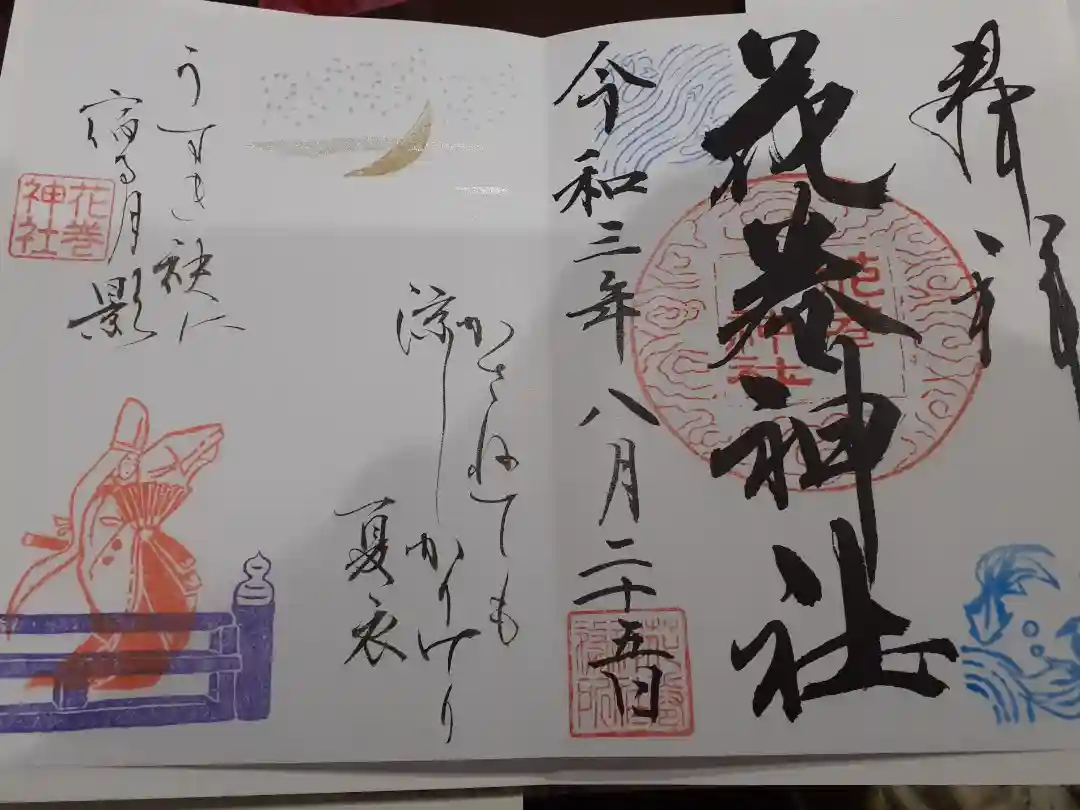 花巻神社
花巻
神社
令和三年八月二十五日
かさねても
涼しかりけり
夏衣
うすき袂に
宿る月影
花巻
神社